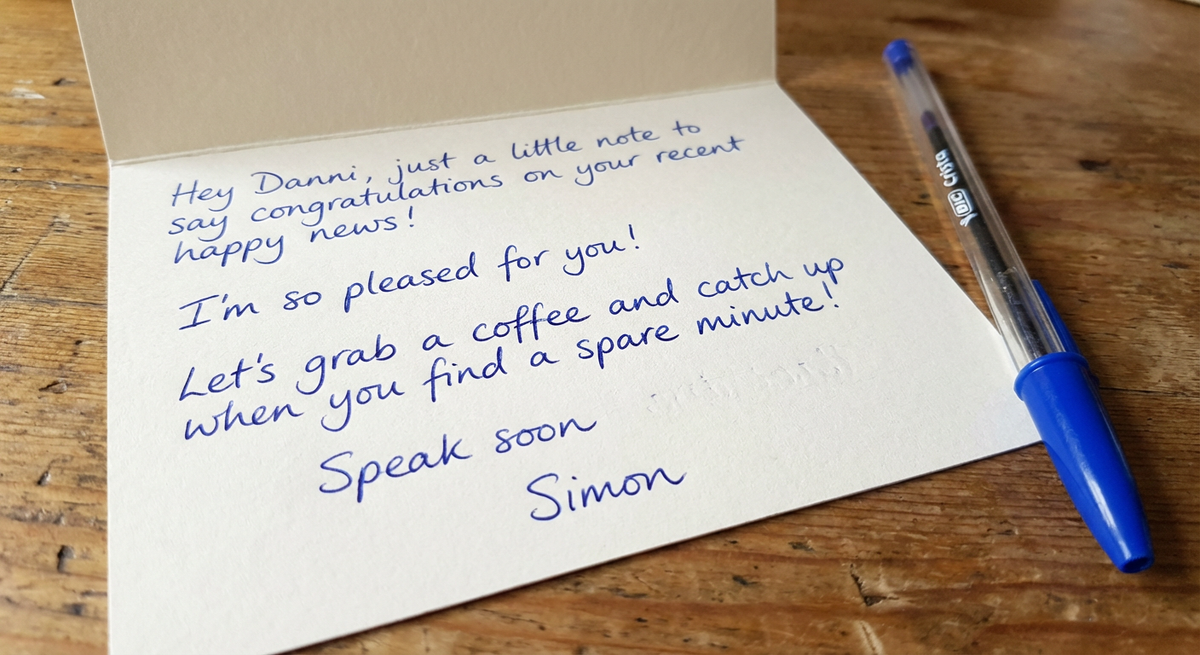 Hey Danni, just a little note to
say congratulations on your recent
happy news!
I'm so pleased for you!
Let's grab a coffee and catch up
when you find a spare minute!
Speak soon
Simon
BIC Crista